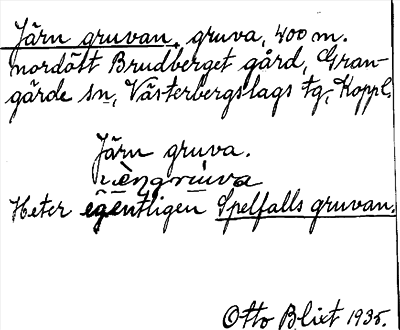 Järn gruvan, gruva, 400 m.
nordött Brudberget gård, Gran-
gärde sn, Västerbergslags tg, Koppl.
Järn gruva.
Heter egentligen Spelfalls gruvan.
Otto Blixt 1935.